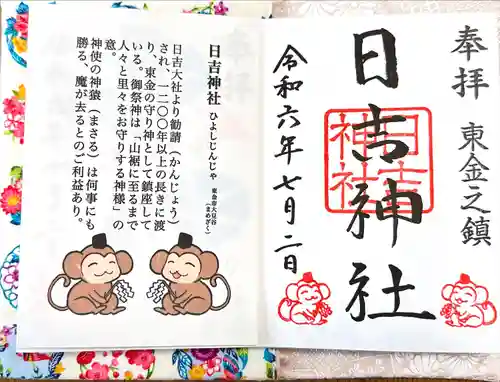 奉拝
東金之鎮
日吉神社
日吉
神社
令和六年七月二日
日吉神社 ひよしじんじゃ
東金市大豆谷
(まめざく)
日吉大社より勧請(かんじょう)
され、一二〇〇年以上の長きに渡
り、東金の守り神として鎮座して
いる。御祭神は「山裾に至るまで
人々と里々をお守りする神様」の
意。
神使の神猿(まさる)は何事にも
勝る、魔が去るとのご利益あり。